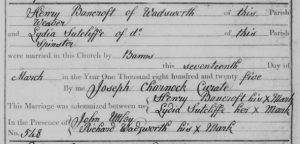 Henry Bancroft of Wadsworth of this Parish
Weaver
and Lydia Sutcliffe of do of this Parish
Spinster
were married in this Church by Banns
this seventeenth Day of
March in the Year One Thousand eight hundred and twenty five
By me Joseph Charnock Curate
This Marriage was solemnized between us Henry Bancroft his X Mark
Lydia Sutcliffe her X Mark
In the Presence of John
Richard Wadsworth his X Mark
No. 543